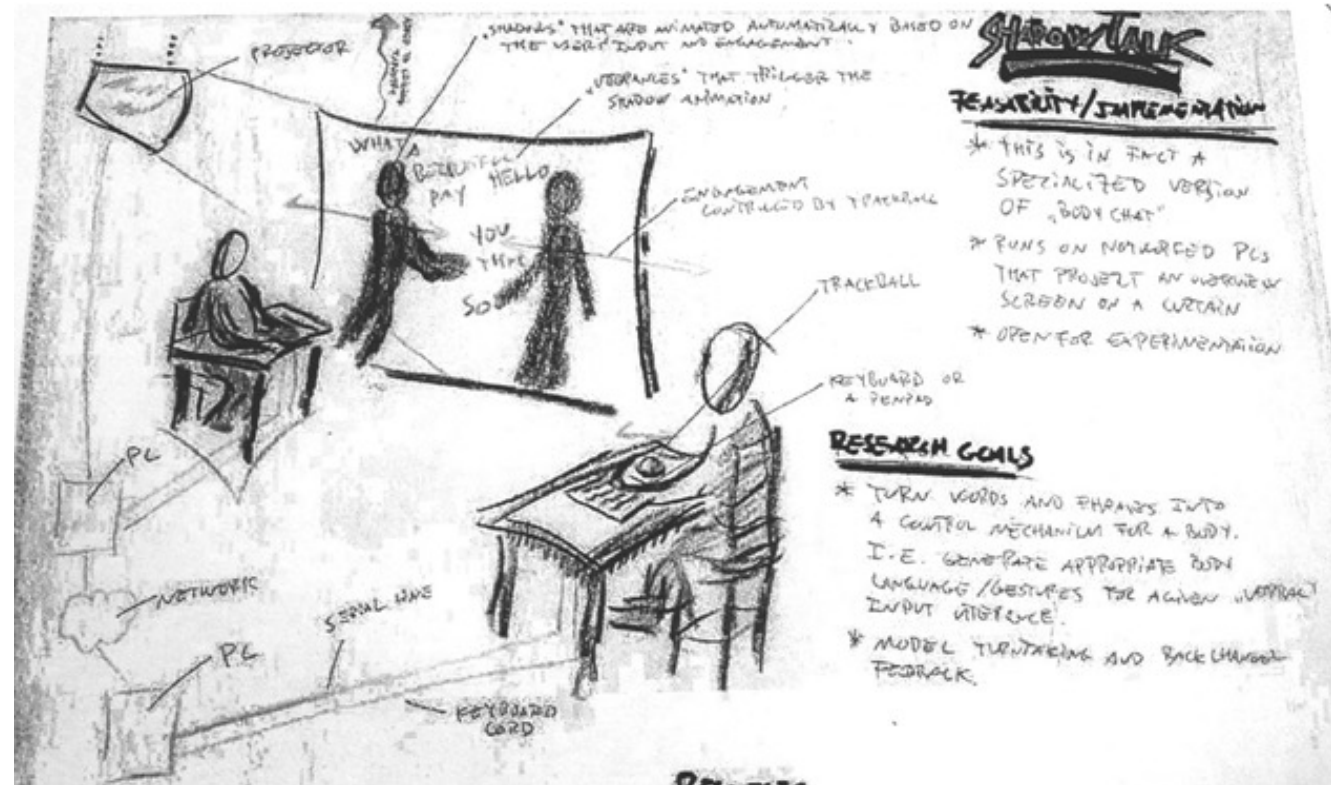 PROJECTOR
"SHADOWS" THAT ARE ANIMATED AUTOMATICALLY BASED ON
THE USERS INPUT AND ENGAGEMENT.
"UTTERANCES" THAT TRIGGER THE
SHADOW ANIMATION
WHAT A
BEAUTIFUL
DAY
HELLO
YOU
THINK
SO
ENGAGEMENT
CONTROLLED BY TRACKBALL
TRACKBALL
KEYBOARD OR
A PENPAD
PC
NETWORK
PC
SERIAL LINE
KEYBOARD
CORD
SHADOW TALK
FEASIBILITY/IMPLEMENTATION
* THIS IS IN FACT A
SPECIALIZED VERSION
OF "BODY CHAT"
* RUNS ON NETWORKED PCs
THAT PROJECT AN OVERVIEW
SCREEN ON A CURTAIN
* OPEN FOR EXPERIMENTATION
RESEARCH GOALS
* TURN WORDS AND PHRASES INTO
A CONTROL MECHANISM FOR A BODY.
I.E. GENERATE APPROPRIATE BODY
LANGUAGE/GESTURES FOR A GIVEN
INPUT UTTERANCE.
* MODEL TURNTAKING AND BACKCHANNEL
FEEDBACK.